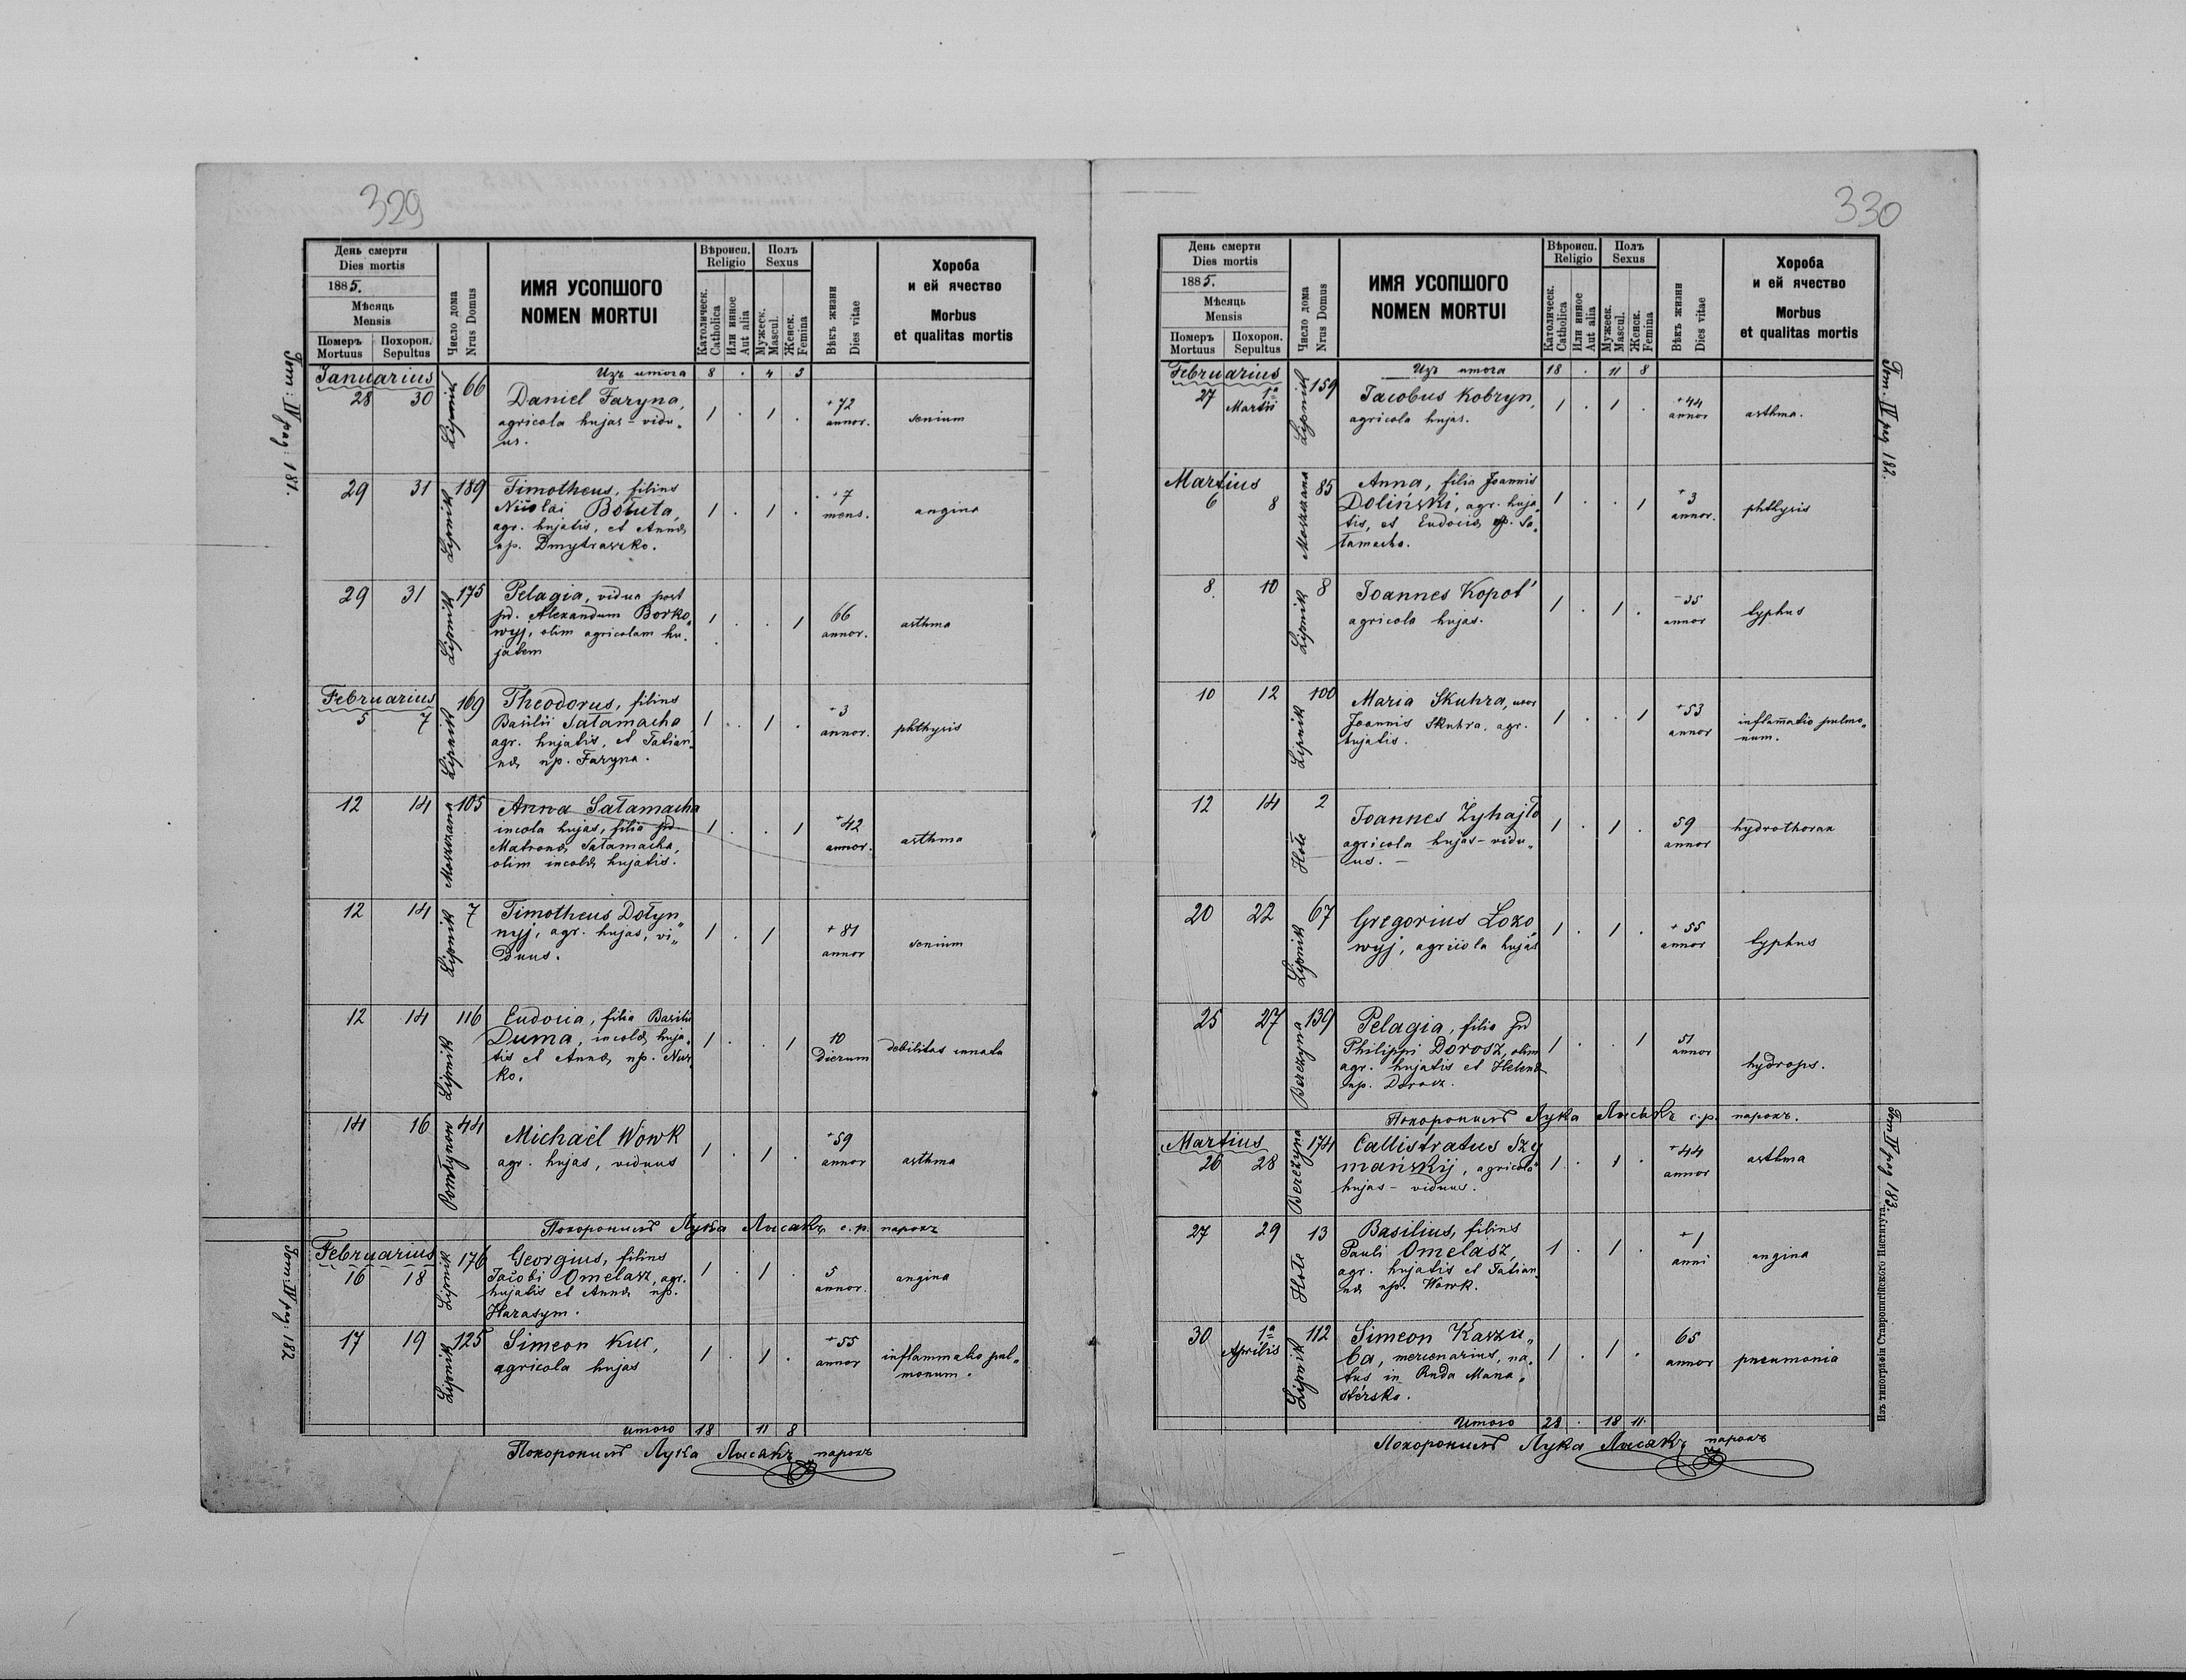 329
День смерти
Dies mortis
1885.
Мѣсяць
Mensis
Померъ
Mortuus
Похорон.
Sepultus
Число дома
Nrus Domus
ИМЯ УСОПШОГО
NOMEN MORTUI
Вѣроисп.
Religio
Католическ.
Catholica
Или инное
Aut alia
Полъ
Sexus
Мужеск.
Mascul.
Женск.
Femina
Вѣкъ жизни
Dies vitae
Хороба
и ей ячество
Morbus
et qualitas mortis
Tom: IV pag: 181.
Изъ итога 8 . 4 3
Januarius
28 30 Lipnik 66 Daniel Faryna, 1 . 1 . +72 annor. senium
agricola hujas – vidu„
us.
29 31 Lipnik 189 Timotheus, filius 1 . 1 . +7 mens. angina
Nicolai Bołuta,
agr. hujatis, et Annæ
np. Dmytraszko.
29 31 Lipnik 175 Pelagia, vidua post 1 . . 1 66 annor. asthma
pd. Alexandum Borko„
wyj, olim agricolam hu„
jatem
Februarius
5 7 Lipnik 169 Theodorus, filius 1 . 1 . +3 annor. phthysis
Basilii Sałamacha
agr. hujatis, et Tatian„
næ np. Faryna.
12 14 Moszczana 105 Anna Sałamacha 1 . . 1 +42 annor. asthma
incola hujas, filia pd
Matronæ Sałamacha,
olim incolæ hujatis.
12 14 Lipnik 7 Timotheus Dołyn„ 1 . 1 + 81 annor senium
nyj, agr. hujas, vi„
duus.
12 14 Lipnik 116 Eudocia, filia Basilii 1 . . 1 10 Dierum debilitas innata
Duma, incolæ huja„
tis et Annæ np.
ko.
14 16 44 Michaël Wowk 1 . 1 . +59 annor asthma
agr. hujas, viduus
Похоронилъ Лука Лисакъ с.р. парохъ
Tom: IV pag: 182
Februarius
16 18 Lipnik 176 Georgius, filius 1 . 1 . 5 annor. angina
Jacobi Omelasz, agr.
hujatis et Annæ np.
Harasym.
17 19 Lipnik 125 Simeon Kuc, 1 . 1 . +55 annor inflammatio pul„
agricola hujas monum.
итого 18 11 8
Похоронилъ Лука Лисакъ парохъ
330
День смерти
Dies mortis
1885.
Мѣсяць
Mensis
Померъ
Mortuus
Похорон.
Sepultus
Число дома
Nrus Domus
ИМЯ УСОПШОГО
NOMEN MORTUI
Вѣроисп.
Religio
Католическ.
Catholica
Или инное
Aut alia
Полъ
Sexus
Мужеск.
Mascul.
Женск.
Femina
Вѣкъ жизни
Dies vitae
Хороба
и ей ячество
Morbus
et qualitas mortis
Tom. IV pag 182.
Изъ итога 18 . 11 8
Februarius
27 1ª Martii Lipnik 159 Jacobus Kobryn, 1 . 1 . +44 annor asthma.
agricola hujas.
Martius
6 8 Moszczana 85 Anna, filia Joannis 1 . . 1 +3 annor. phthysis
Doliński, agr. huja„
tis, et Eudociæ np. Sa„
łamacha.
8 10 Lipnik 8 Joannes Kopoť 1 . 1 . 35 annor typhus
agricola hujas.
10 12 Lipnik 100 Maria Skuhra, uxor 1 . . 1 +53 annor inflamatio pulmo„
Joannis Skuhra, agr. num.
hujatis.
12 14 Hołe 2 Joannes Żyhajło 1 . 1 . 59 annor hydrothorax
agricola hujas – vidu„
us. –
20 22 Lipnik 67 Gregorius Łozo„ 1 . 1 . + 55 annor typhus
wyj, agricola hujas
25 27 Berezyna 139 Pelagia, filia pd 1 . . 1 51 annor hydrops.
Philippi Dorosz, olim
agr. hujatis et Helenæ
np. Dorosz.
Похоронилъ Лука Лисакъ с.р. парохъ.
Tom IV pag 183.
Martius
26 28 Berezyna 174 Callistratus Szy 1 . 1 . +44 annor asthma
mańskij, agricola
hujas – viduus.
27 29 Hołe 13 Basilius, filius 1 . 1 . +1 anni angina
Pauli Omelasz,
agr. hujatis et Tatian„
næ np. Wowk.
30 1ª Aprilis Lipnik 112 Simeon Kaszu„ 1 . 1 . 65 annor pneumonia
ba, mercenarius, na„
tus in Ruda Mana„
sterska.
Итого 28 . 18 11
Похоронилъ Лука Лисакъ парохъ
Изъ типографіи Ставропигійского Института